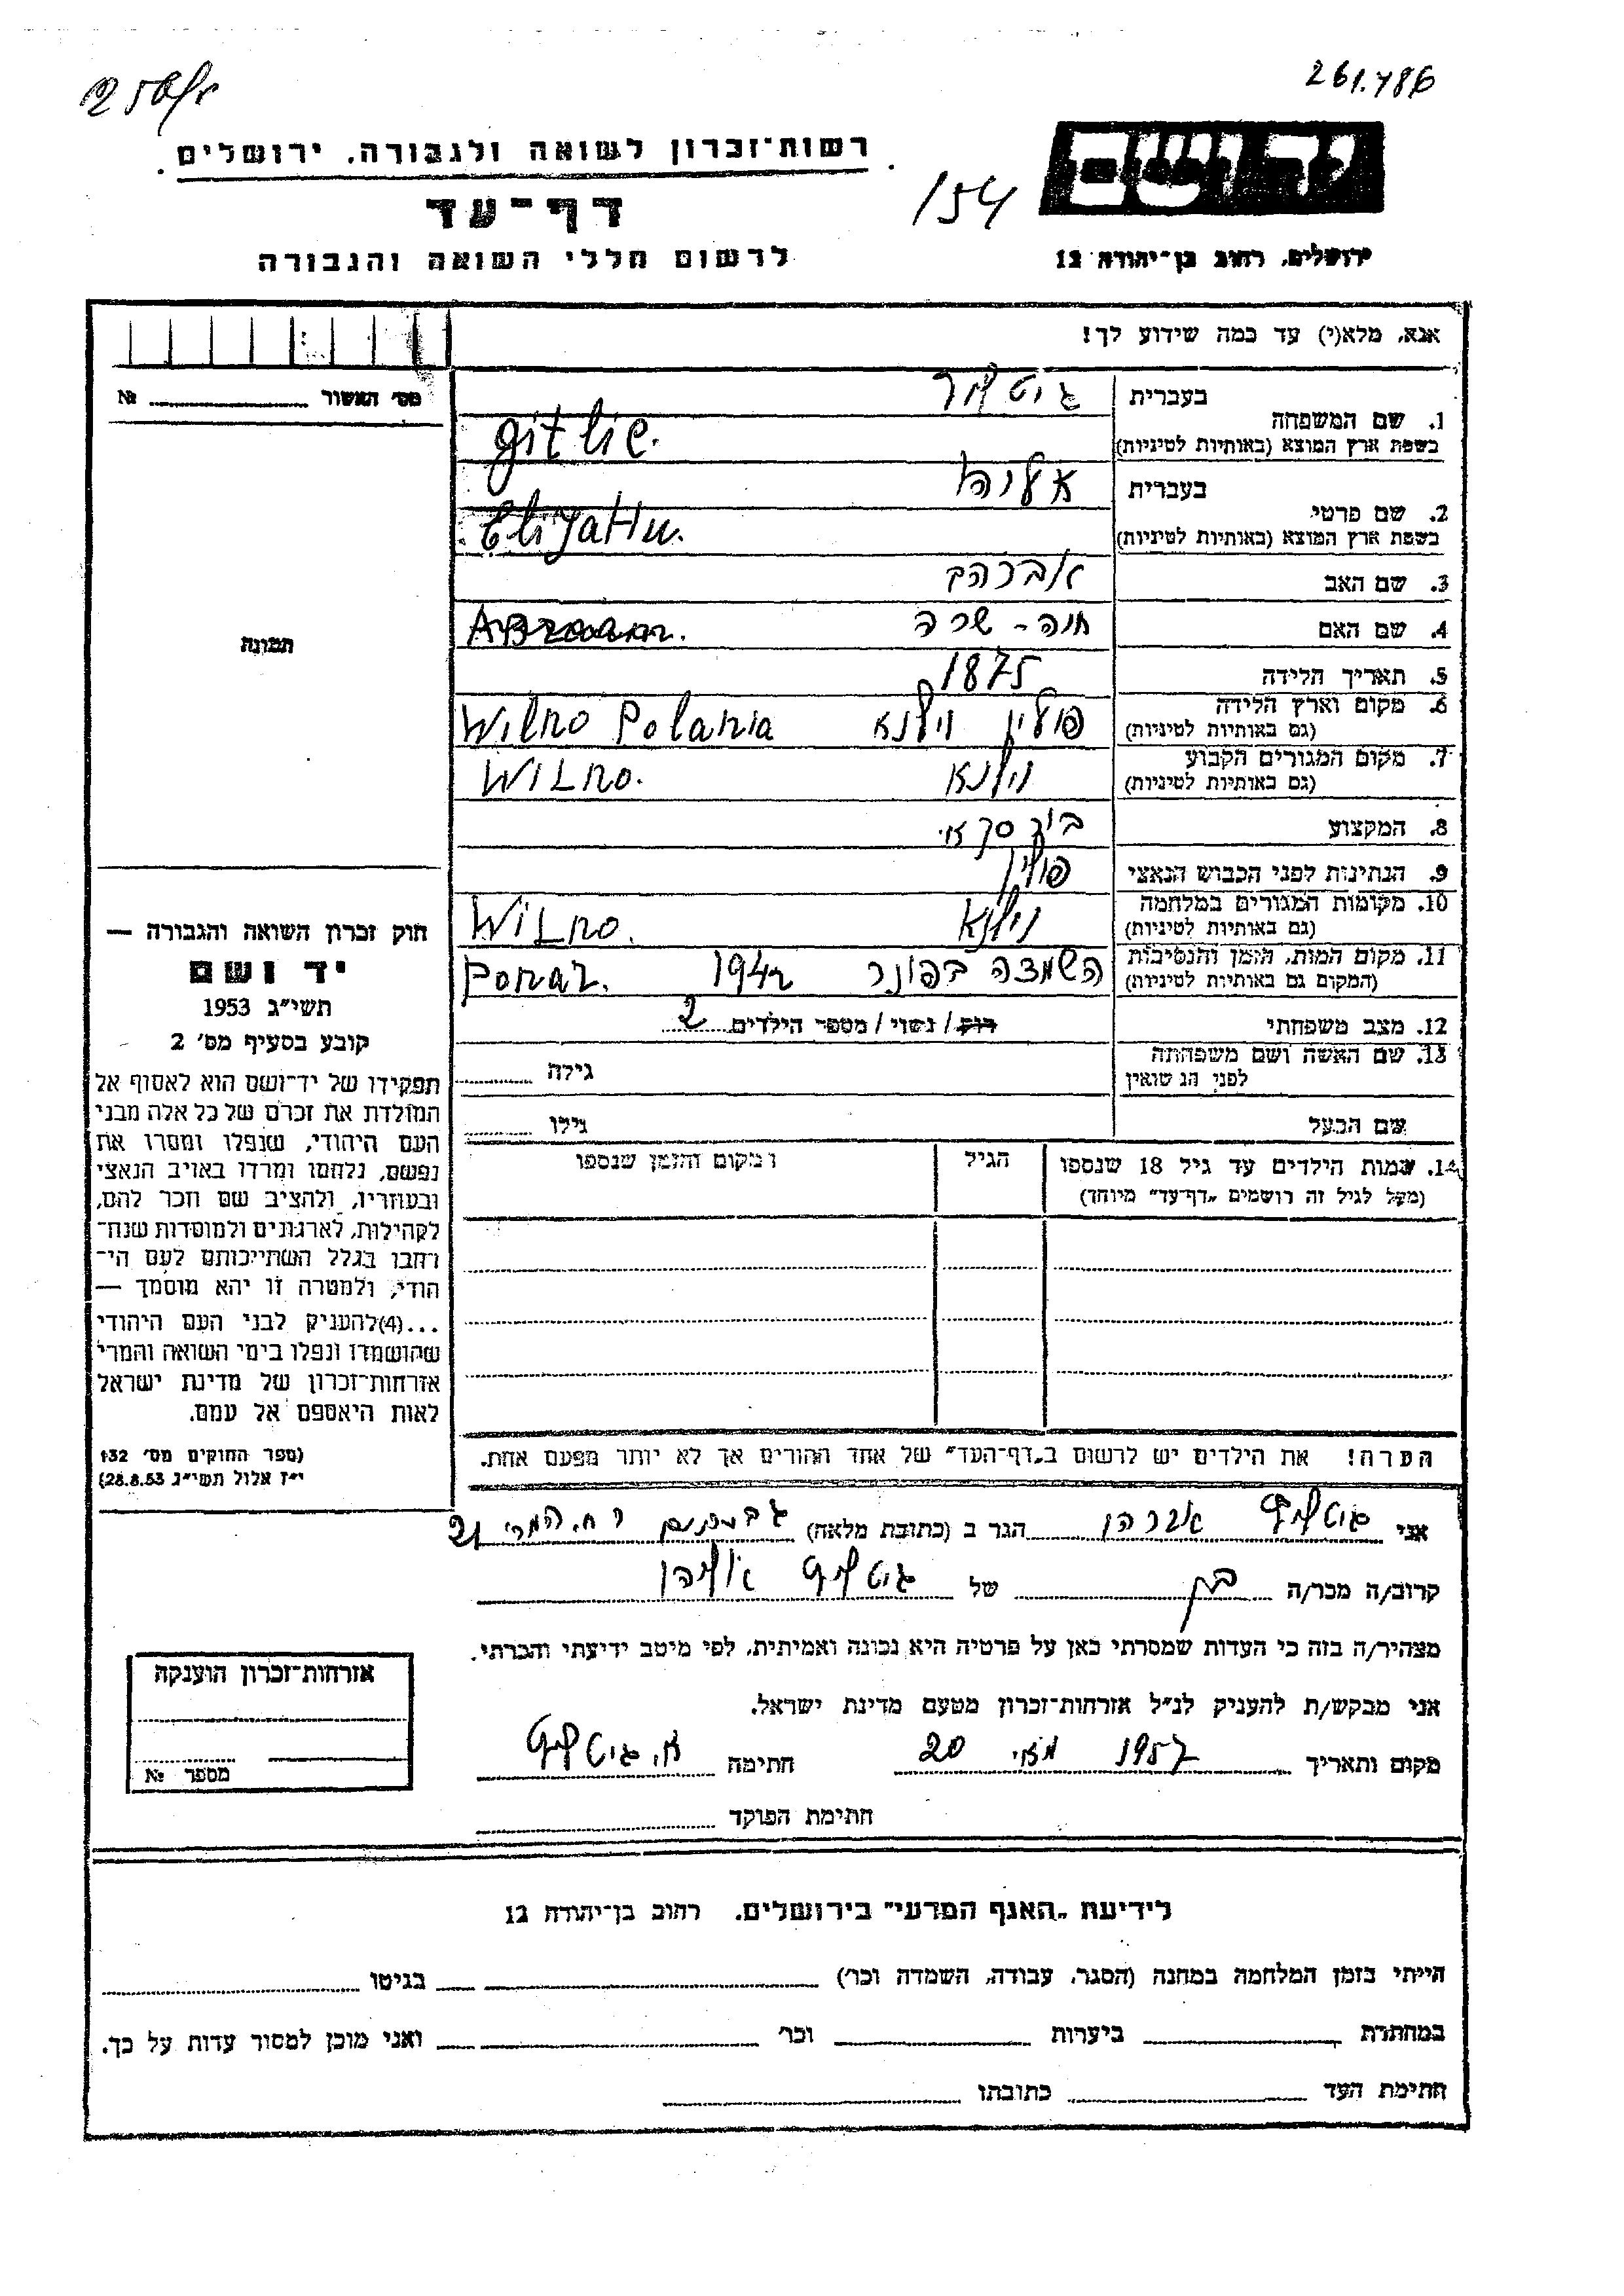 261.786
רשות־זכרון לשואה ולגבורה, ירושלים
154
דף־עד
לרשום חללי השואה והגבורה
ירושלים, רחוב בן־יהודה 12
אנא, מלא(י) עד כמה שידוע לך!
מס' האשור № 
1. שם המשפחה
בעברית
בשפת ארץ המוצא (באותיות לטיניות)
gitlic.
2. שם פרטי
בעברית אליהו
בשפת ארץ המוצא (באותיות לטיניות) EliyaHu.
3. שם האב אברהם
4. שם האם חנה - שרה
5. תאריך הלידה 1875
6. מקום וארץ הלידה
(גם באותיות לטיניות) פולין וילנא Wilno Polania
7. מקום המגורים הקבוע
(גם באותיות לטיניות) וילנא WILno.
8. המקצוע
9. הנתינות לפני הכבוש הנאצי פולין
10. מקומות המגורים במלחמה
(גם באותיות לטיניות) וילנא WiLno.
11. מקום המות, הזמן והנסיבות
(המקום גם באותיות לטיניות) השמצה בפונר 1942 Ponar.
12. מצב משפחתי רווק / נשוי / מספר הילדים 2
13. שם האשה ושם משפחתה
לפני הנשואין גילה
שם הבעל גילו
14. שמות הילדים עד גיל 18 שנספו הגיל ומקום והזמן שנספו
(מעל לגיל זה רושמים „דף־עד" מיוחד)
הערה! את הילדים יש לרשום ב„דף־העד" של אחד ההורים אך לא יותר מפעם אחת.
תמונה
חוק זכרון השואה והגבורה —
יד ושם
תשי"ג 1953
קובע בסעיף מס' 2
תפקידו של יד־ושם הוא לאסוף אל
המולדת את זכרם של כל אלה מבני
העם היהודי, שנפלו ומסרו את
נפשם, נלחמו ומרדו באויב הנאצי
ובעוזריו, ולהציב שם וזכר להם,
לקהילות, לארגונים ולמוסדות שנח־
רבו בגלל השתייכותם לעם הי־
הודי, ולמטרה זו יהא מוסמך —
...(4)להעניק לבני העם היהודי
שהושמדו ונפלו בימי השואה והמרי
אזרחות־זכרון של מדינת ישראל
לאות היאספם אל עמם.
(ספר החוקים מס' 132
י"ז אלול תשי"ג 28.8.53)
אני גיטליץ אברהם הגר ב (כתובת מלאה) גבעתיים רח. המרי 21
קרוב/ה מכר/ה בן של גיטליץ אליהו
מצהיר/ה בזה כי העדות שמסרתי כאן על פרטיה היא נכונה ואמיתית, לפי מיטב ידיעתי והכרתי.
אני מבקש/ת להעניק לנ"ל אזרחות־זכרון מטעם מדינת ישראל.
מקום ותאריך 1957 מאי 20 חתימה א. גיטליץ
חתימת הפוקד
אזרחות־זכרון הוענקה
מספר №
לידיעת „האגף המדעי" בירושלים, רחוב בן־יהודה 12
הייתי בזמן המלחמה במחנה (הסגר, עבודה, השמדה וכו') בגיטו
במחתרת ביערות וכו' ואני מוכן למסור עדות על כך.
חתימת העד כתובתו